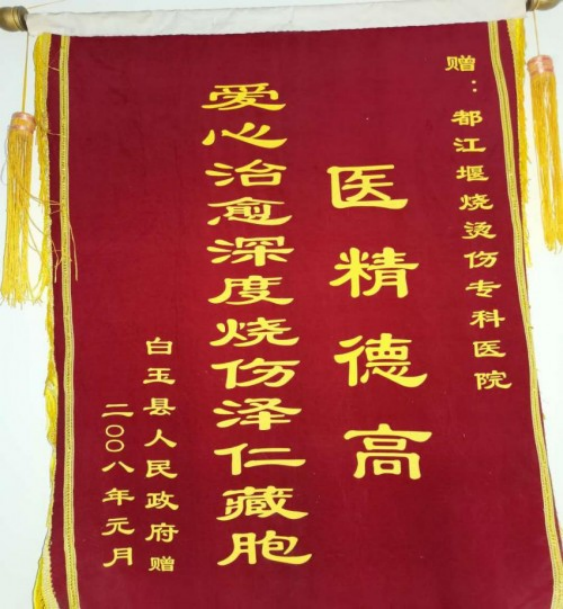 赠：都江堰烧烫伤专科医院
医精德高
爱心治愈深度烧伤泽仁藏胞
白玉县人民政府赠
二〇〇八年元月